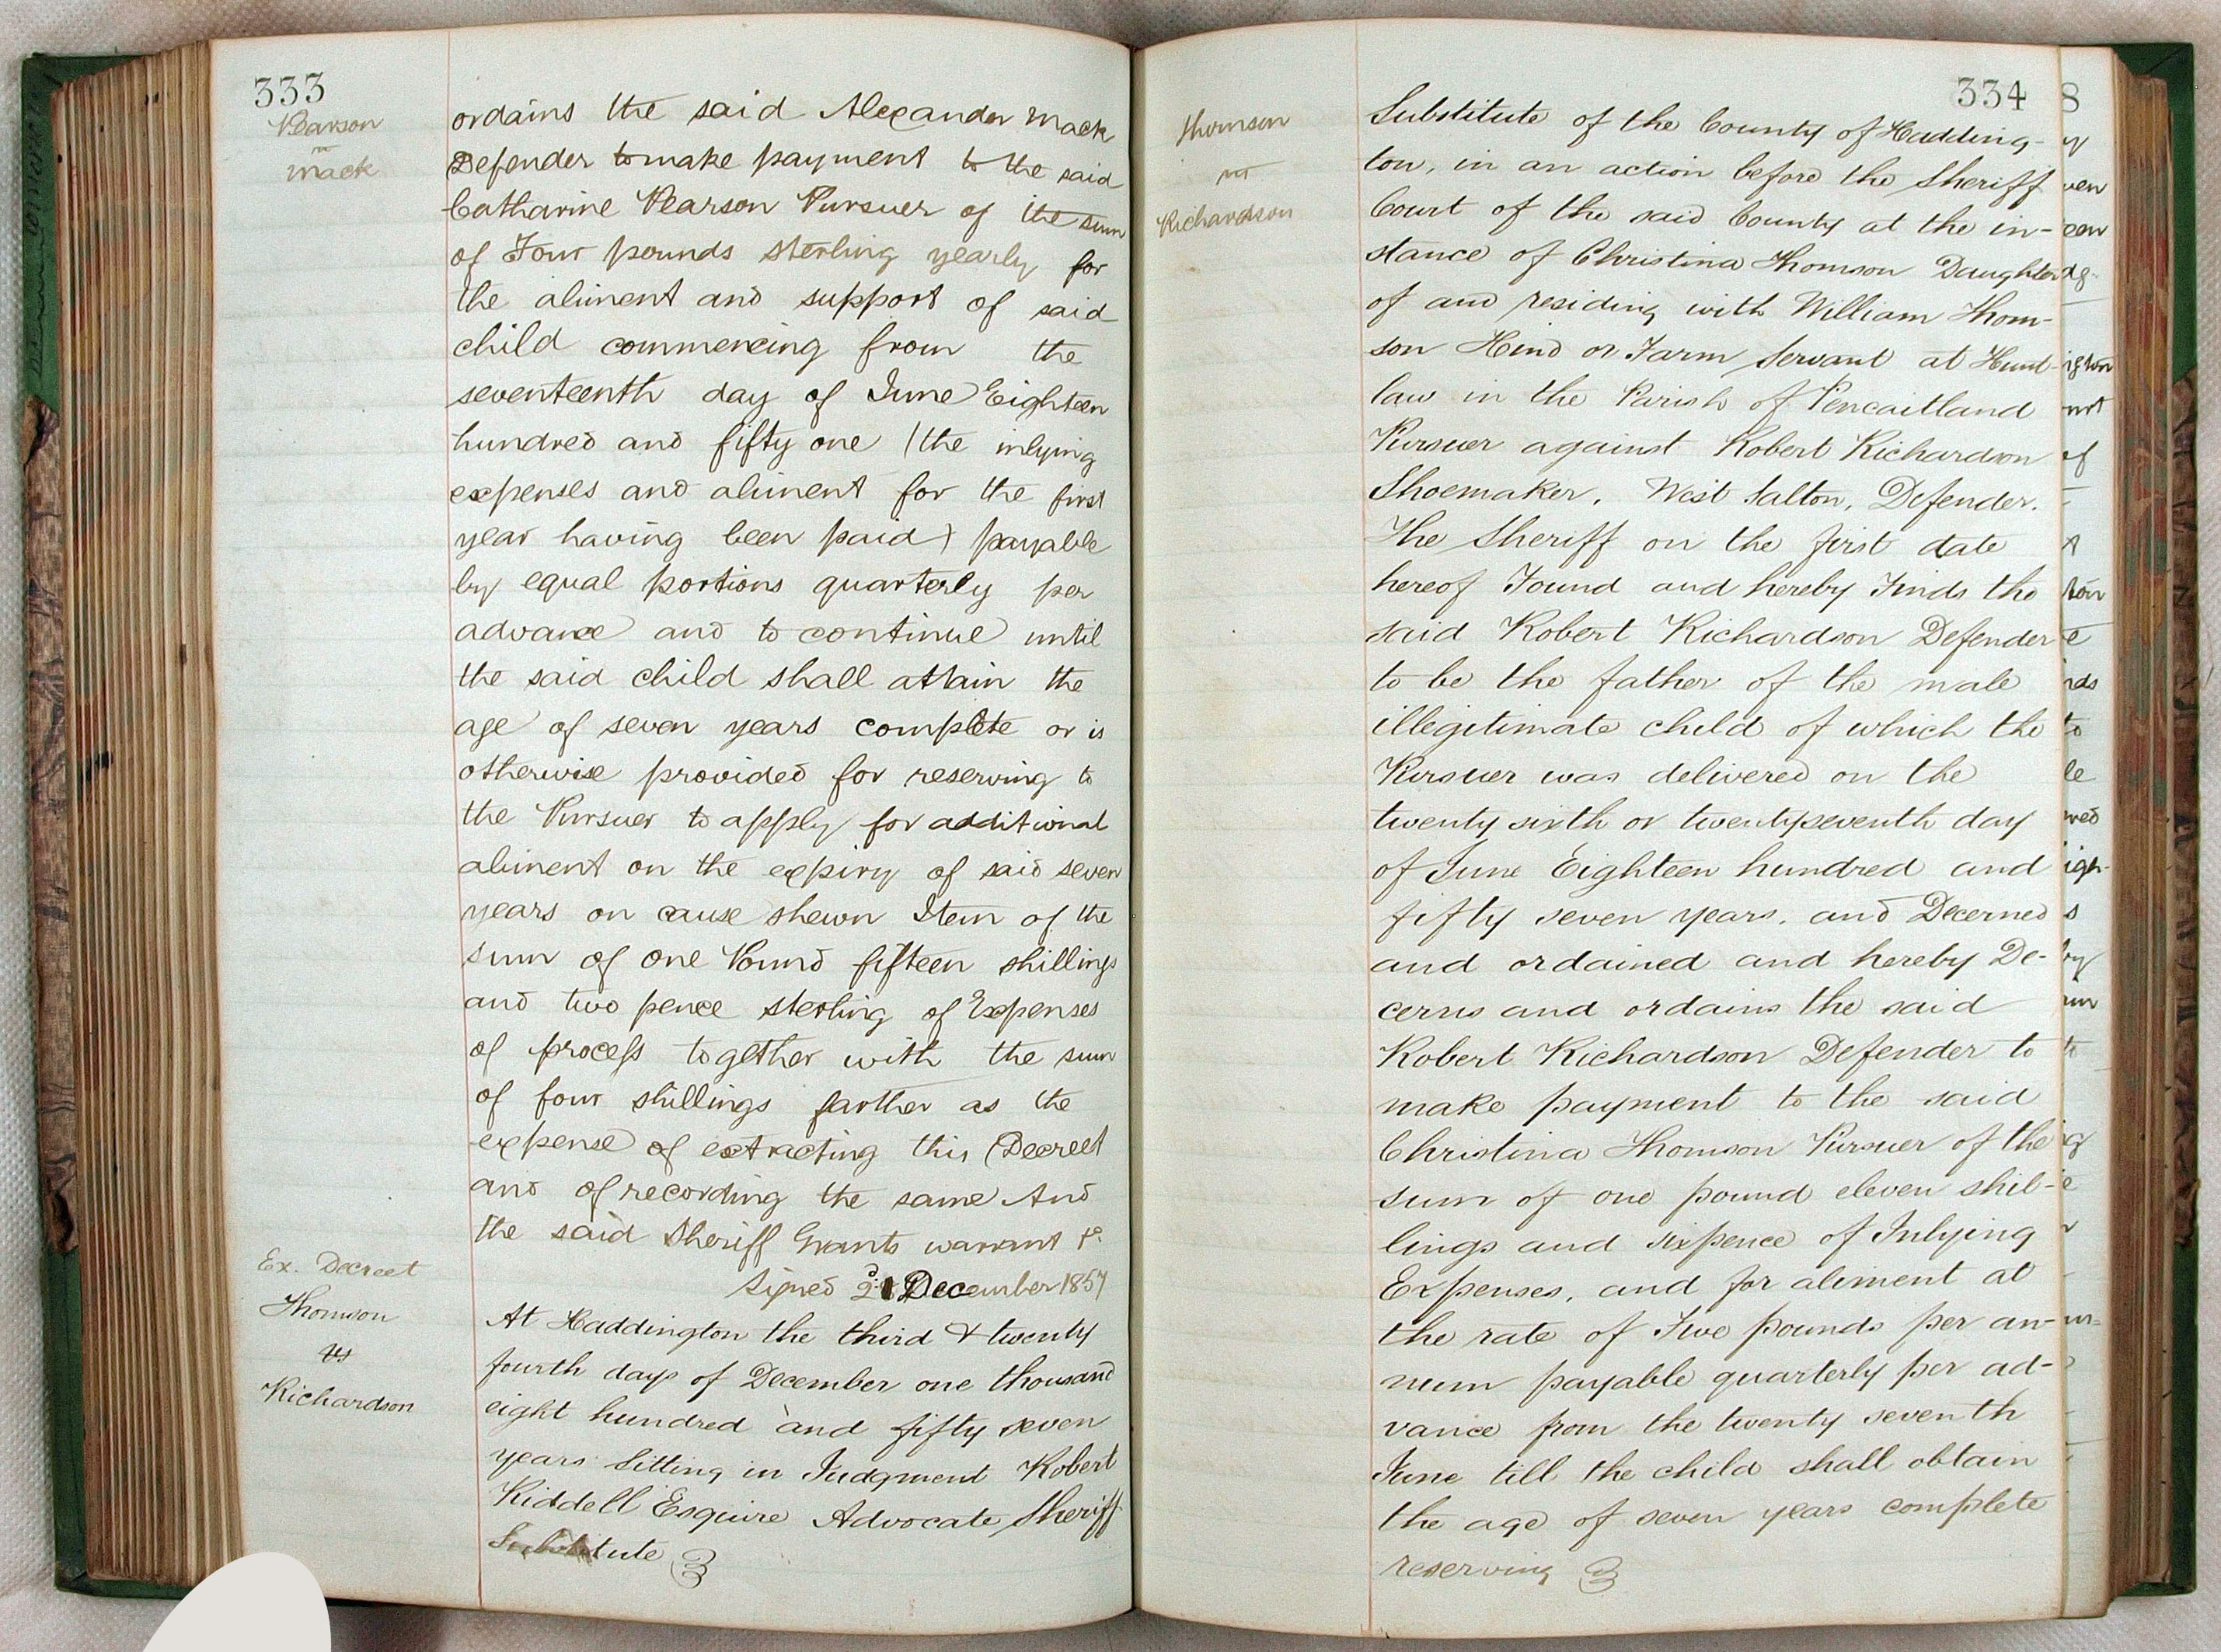 333
Pearson
vs
Mack
ordains the said Alexander Mack
Defender to make payment to the said
Catharine Pearson Pursuer of the sum
of Four pounds Sterling yearly for
the aliment and support of said
child commencing from the
seventeenth day of June Eighteen
hundred and fifty one (the inlying
expenses and aliment for the first
year having been paid) payable
by equal portions quarterly per
advance and to continue until
the said child shall attain the
age of seven years complete or is
otherwise provided for reserving to
the Pursuer to apply for additional
aliment on the expiry of said seven
years on cause shewn Item of the
sum of one Pound fifteen shillings
and two pence sterling of Expenses
of process together with the sum
of four shillings farther as the
expense of extracting this Decreet
and of recording the same And
the said Sheriff Grants warrant &c
Signed December 1857
Ex. Decreet
Thomson
vs
Richardson
At Haddington the third & twenty
fourth days of December one thousand
eight hundred and fifty seven
years Sitting in Judgment Robert
Riddell Esquire Advocate Sheriff
Substitute
334
Thomson
vs
Richardson
Substitute of the County of Hadding-
ton, in an action before the Sheriff
Court of the said County at the in-
stance of Christina Thomson Daughter
of and residing with William Thom-
son Hind or Farm Servant at Hund-
law in the Parish of Pencaitland
Pursuer against Robert Richardson
Shoemaker, West Salton, Defender.
The Sheriff on the first date
hereof Found and hereby Finds the
said Robert Richardson Defender
to be the father of the male
illegitimate child of which the
Pursuer was delivered on the
twenty sixth or twentyseventh day
of June Eighteen hundred and
fifty seven years. and Decerned
and ordained and hereby De-
cerns and ordains the said
Robert Richardson Defender to
make payment to the said
Christina Thomson Pursuer of the
sum of one pound eleven shil-
lings and sixpence of Inlying
Expenses, and for aliment at
the rate of Five pounds per an-
num payable quarterly per ad-
vance from the twenty seventh
June till the child shall obtain
the age of seven years complete
reserving